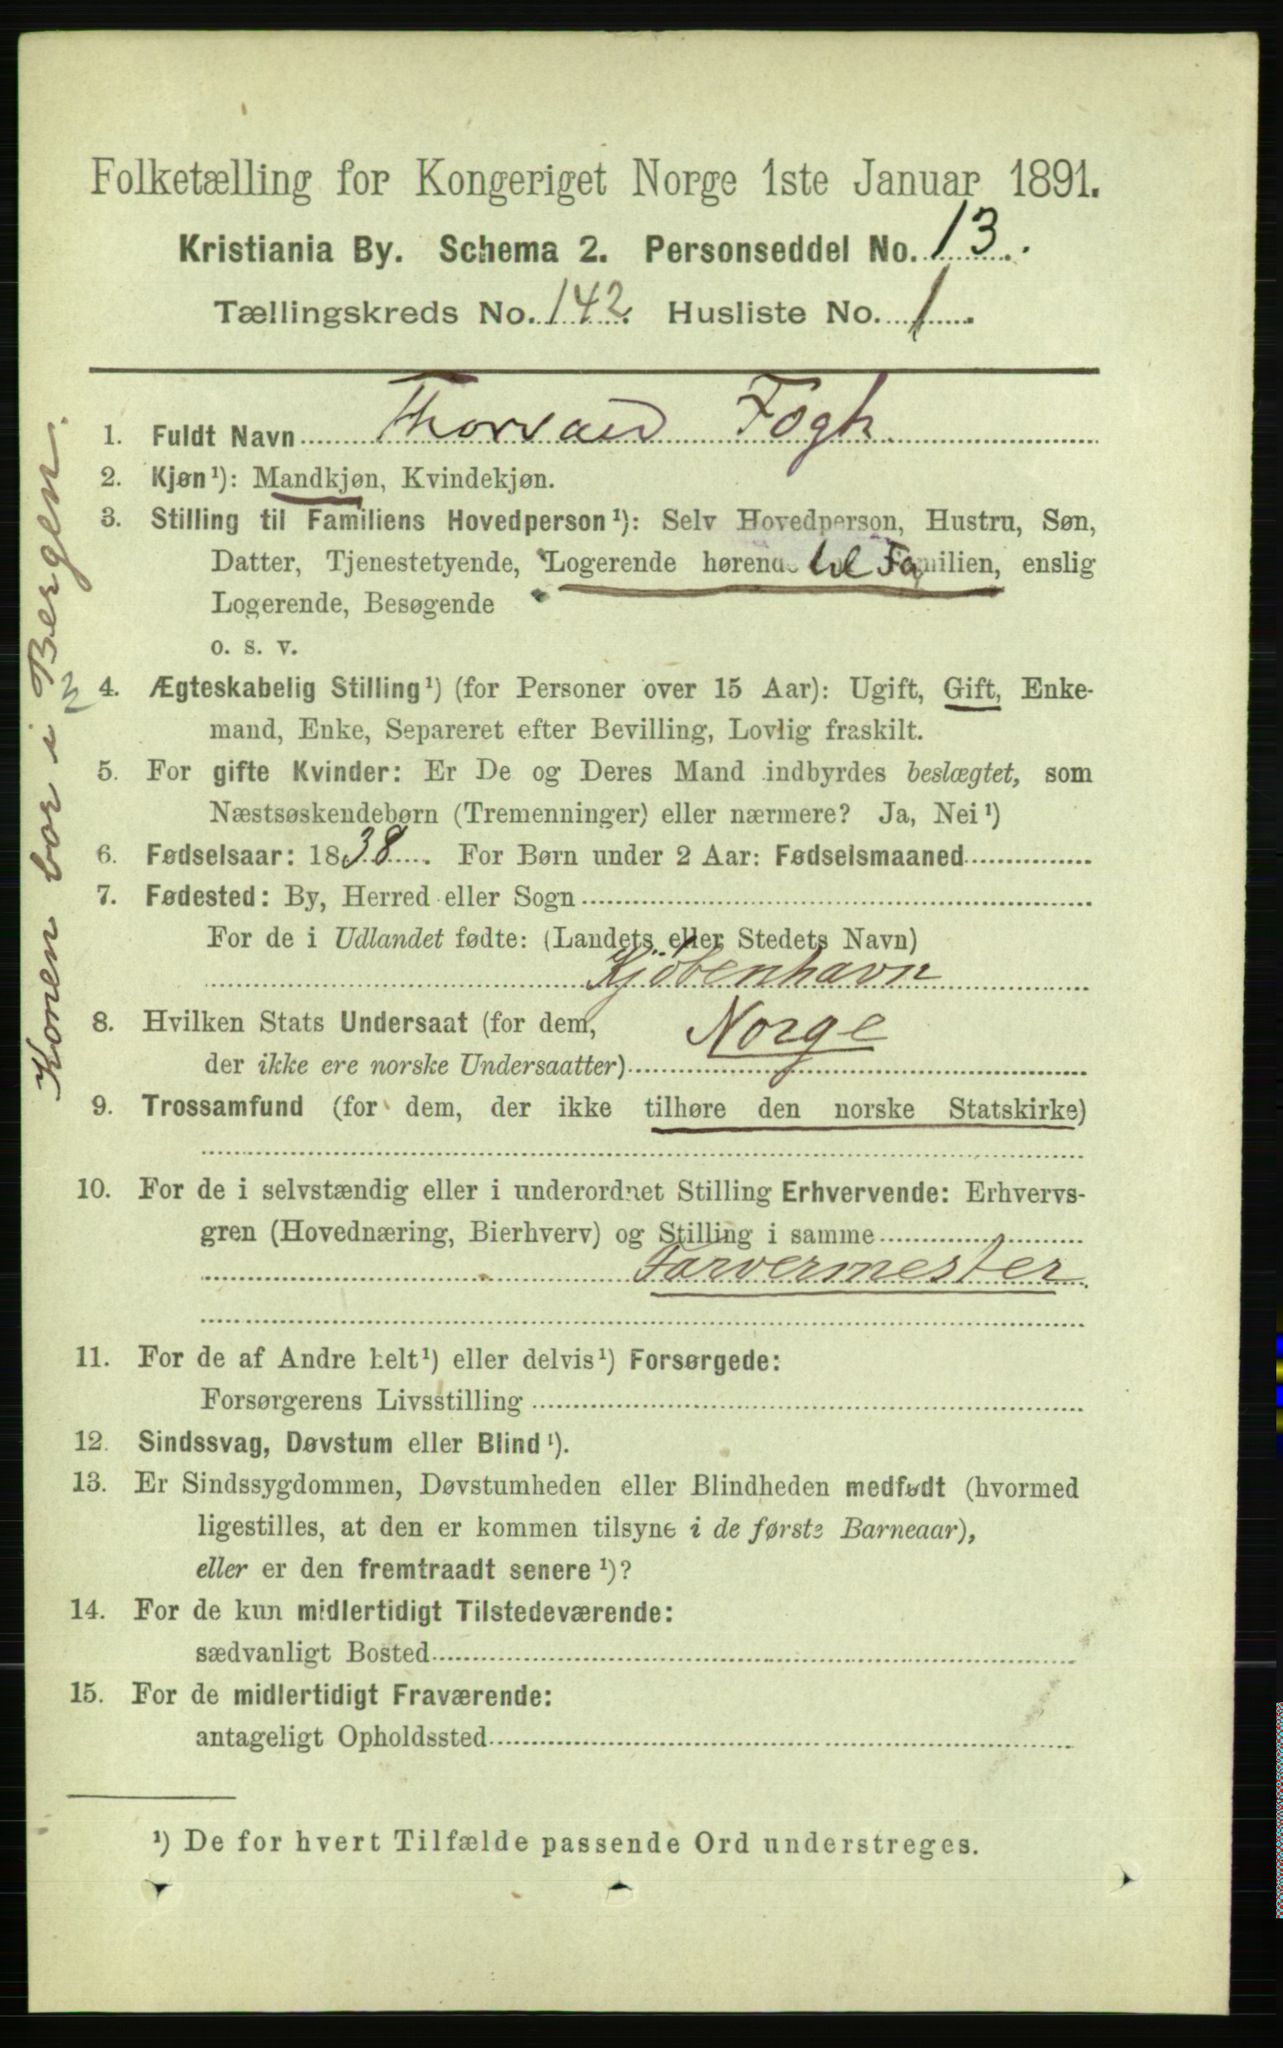 Folketælling for Kongeriget Norge 1ste Januar 1891.
Kristiania By. Schema 2. Personseddel No. 13.
Tællingskreds No. 142 Husliste No. 1.
1. Fuldt Navn Thorvald Fogh
2. Kjøn¹): Mandkjøn, Kvindekjøn.
3. Stilling til Familiens Hovedperson¹): Selv Hovedperson, Hustru, Søn,
Datter, Tjenestetyende, Logerende hørende til Familien, enslig
Logerende, Besøgende
o. s. v.
4. Ægteskabelig Stilling¹) (for Personer over 15 Aar): Ugift, Gift, Enke-
mand, Enke, Separeret efter Bevilling, Lovlig fraskilt.
5. For gifte Kvinder: Er De og Deres Mand indbyrdes beslægtet, som
Næstsøskendebørn (Tremenninger) eller nærmere? Ja, Nei¹)
6. Fødselsaar: 1838. For Børn under 2 Aar: Fødselsmaaned
7. Fødested: By, Herred eller Sogn
For de i Udlandet fødte: (Landets eller Stedets Navn)
Kjöbenhavn
8. Hvilken Stats Undersaat (for dem, Norge
der ikke ere norske Undersaatter)
9. Trossamfund (for dem, der ikke tilhøre den norske Statskirke)
10. For de i selvstændig eller i underordnet Stilling Erhvervende: Erhvervs-
gren (Hovednæring, Bierhverv) og Stilling i samme
Farvermester
11. For de af Andre helt¹) eller delvis¹) Forsørgede:
Forsørgerens Livsstilling
12. Sindssvag, Døvstum eller Blind¹).
13. Er Sindssygdommen, Døvstumheden eller Blindheden medfødt (hvormed
ligestilles, at den er kommen tilsyne i de første Barneaar),
eller er den fremtraadt senere¹)?
14. For de kun midlertidigt Tilstedeværende:
sædvanligt Bosted
15. For de midlertidigt Fraværende:
antageligt Opholdssted
¹) De for hvert Tilfælde passende Ord understreges.
Konen bor i Bergen.